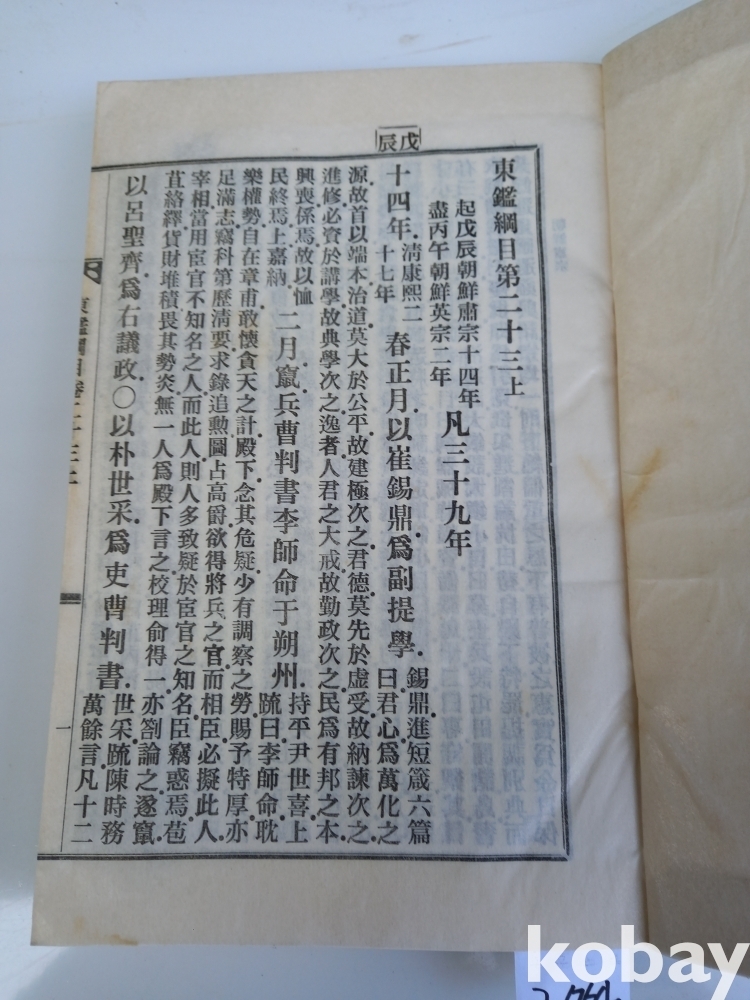 戊辰
東鑑綱目第二十三上
起戊辰朝鮮肅宗十四年
盡丙午朝鮮英宗二年
凡三十九年
十四年
清康熙二
十七年
春正月以崔錫鼎爲副提學.
錫鼎進短箴六篇
曰君心爲萬化之
源.故首以端本治道莫大於公平.故建極次之.君德莫先於虛受.故納諫次之.
進修必資於講學.故典學次之.逸者人君之大戒.故勤政次之.民爲有邦之本.
興喪係焉.故以恤
民終焉.上嘉納.
二月竄兵曹判書李師命于朔州.
持平尹世喜上
疏曰李師命耽
樂權勢.自在章甫.敢懷貪天之計.殿下念其危疑.少有調察之勞.賜予特厚.亦
足滿志.竊科第歷清要.求錄追勳.圖占高爵.欲得將兵之官.而相臣必擬此人.
宰相當用宦官不知名之人.而此人則人多致疑於宦官之知名.臣竊惑焉.苞
苴絡繹.貨財堆積.畏其勢炎.無一人爲殿下言之.校理俞得一亦劄論之.遂竄.
以呂聖齊爲右議政.○以朴世采爲吏曹判書.
世采疏陳時務
萬餘言凡十二
東鑑綱目卷二十三上
一
kobay